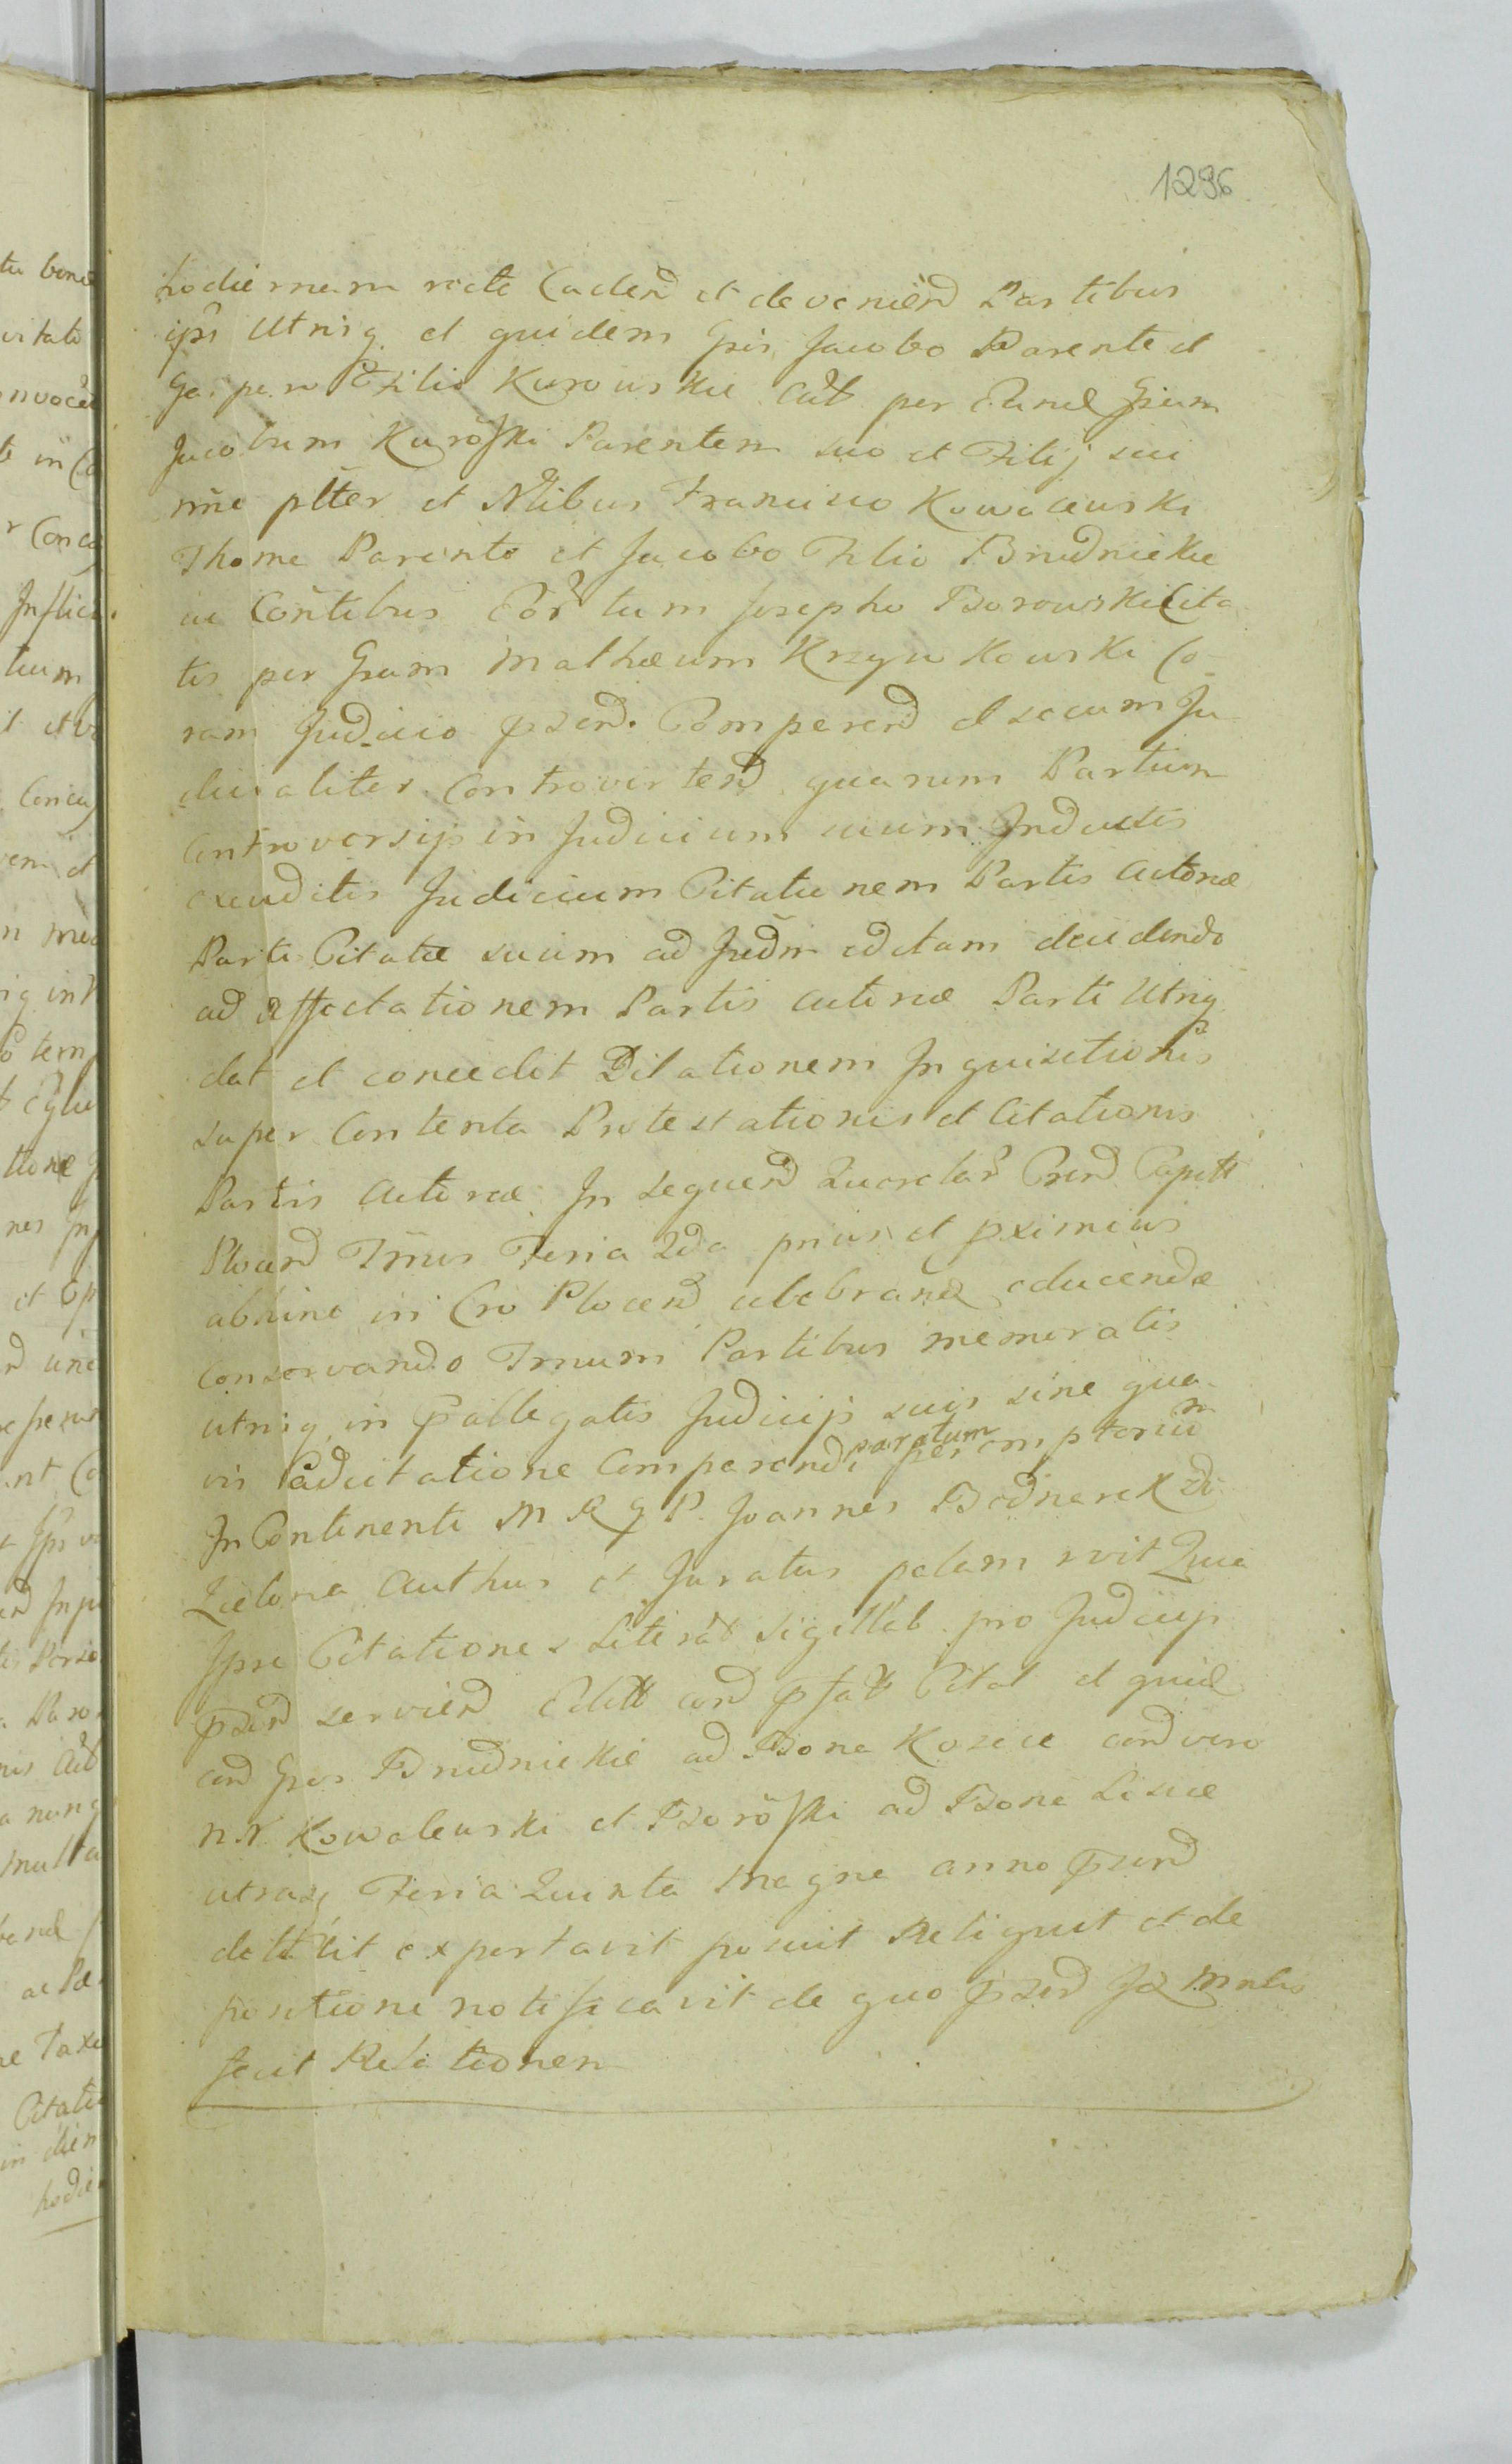 1296
hodiernam recte Caden̄d et devenien̄d Partibus
ip̄s Utrisq. et quidem Gsis Jacobo Parente et
Gasparo Filio Kurowskie Act per Eund Gsum
Jacobum Kurõski Parentem suo et Filij sui
nñe pltter et Nlibus Francisco Kowalewski
Thoma Parente et Jacobo Filio Brudnickie
ac Cõntibus Eor tum Josepho Borowski Cita
tis per Gsum Mathæum Krzywkowski Co
ram Judicio pzend. Comperend et secum Ju
dicialiter Controvertend quarum Partium
Controversijs in Judicium suum Inductis
exauditis Judicium Citationem Partis Actoræ
Parti Citatæ suum ad Judm editam decidendo
ad affectationem Partis Actoræ Parti Utriq
dat et concedit Dilationem Inquisitionis
super Contenta Protestationis et Citationis
Partis Actoræ In sequend Querelar Crend Capitt
Plocend Tr̄nis Feria 2da prius et pximius
abhinc in Cro Plocend celebrand educendæ
Conservando Trnum Partibus memoratis
utrisq, in p̄allegatis Judicijs suis sine qua
vis adcitatione Comparendi paratum peremptorium
In Continenti M R G P. Joannes Bednarek di
Zielona Authus et Juratus palam rvit Quia
Ipse Citationes Literat sigillat pro Judicijs
p̄zend serviend Editt cond p̄fatt Citat et quid
cond Gsos Brudnickie ad Bona Kozice cond vero
N.N. Kowalewski et Borõski ad Bona Lisice
utrasq Feria Quinta Magna anno p̄zend
detulit exportavit posuit Reliquit et de
positione notificavit de quo p̄zend Id Mnlis
fecit Relationem